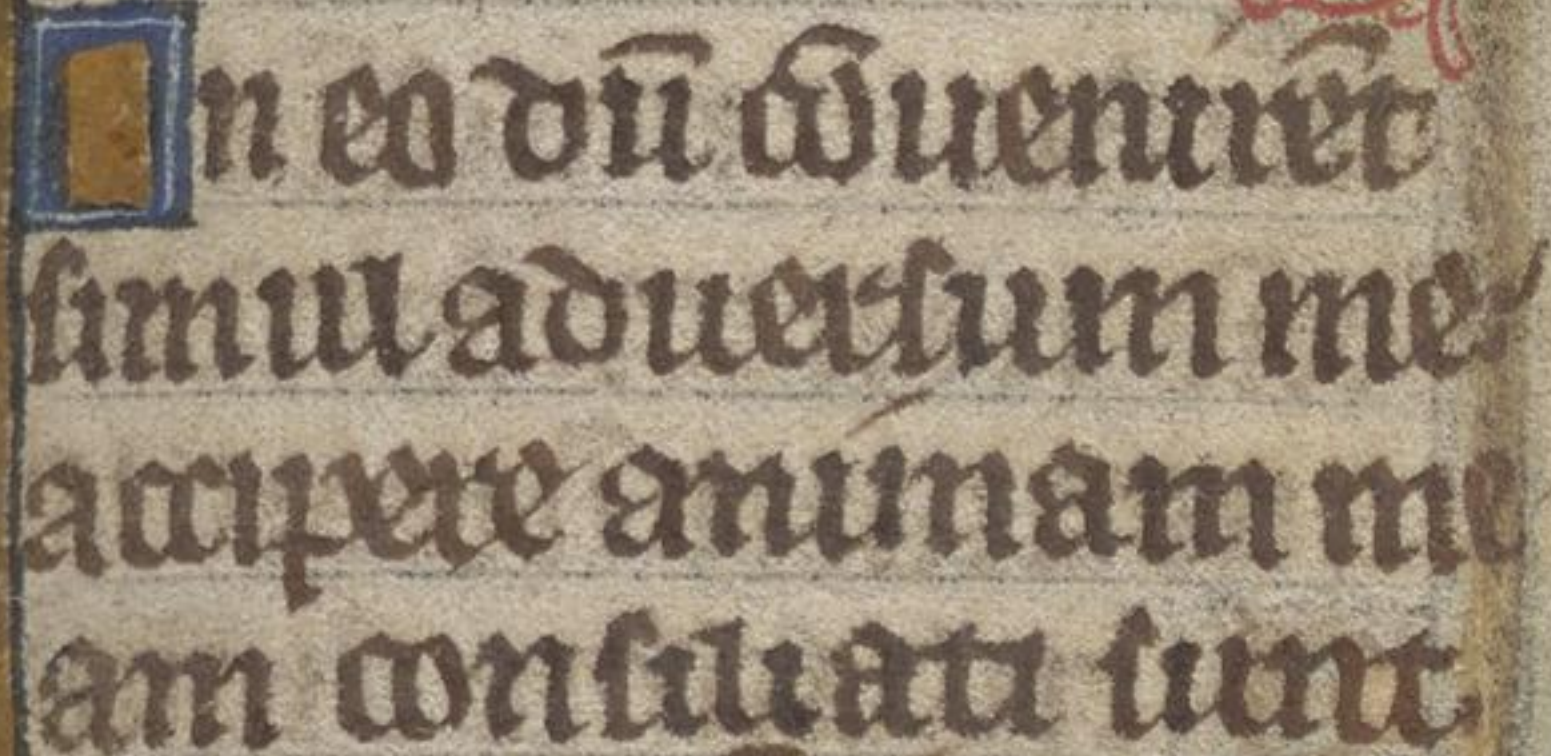 In eo dū cō uenirēt
simul aduersum me
accipere animam me
am consiliati sunt.